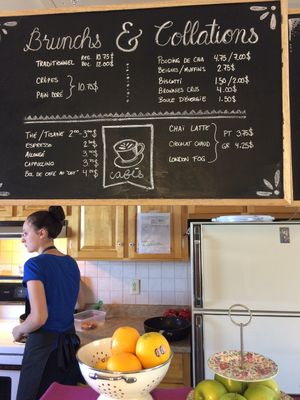 Brunchs & Collations
Traditionnel Reg. 10.75$
Bol. 12.00$
Crêpes
Pain doré } 10.75$
Pouding de Chia 4.75/7.00$
Beignes/Muffins 2.75$
Biscotti 1.50/2.00$
Brownies Crus 4.00$
Boule d'énergie 1.50$
Thé/Tisane
Espresso
Allongé
Cappuccino
Bol de café au lait
Cafés
Chaï Latte
Chocolat Chaud
London Fog
PT 3.75$
GR 4.25$